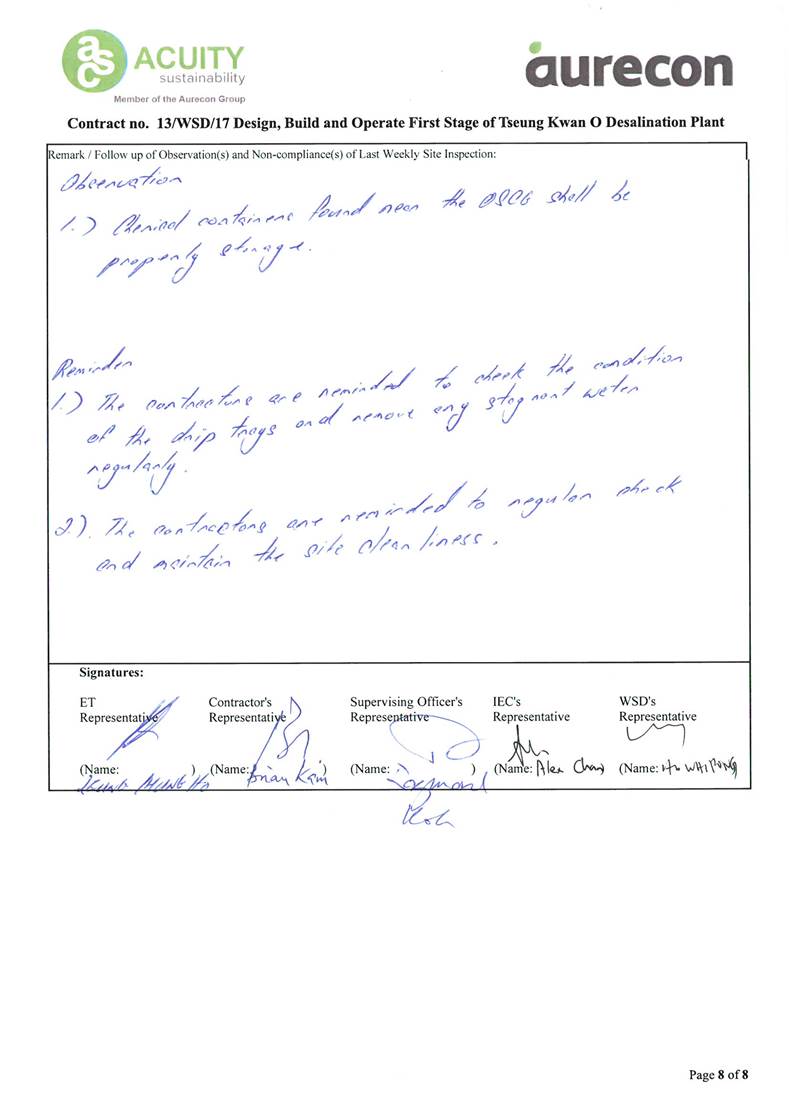 asc ACUITY
sustainability
Member of the Aurecon Group
aurecon
Contract no. 13/WSD/17 Design, Build and Operate First Stage of Tseung Kwan O Desalination Plant
Remark / Follow up of Observation(s) and Non-compliance(s) of Last Weekly Site Inspection:
Observation
1.) Chemical containers found near the OSCG shall be
properly storage.
Reminder
1.) The contractors are reminded to check the condition
of the drip trays and remove any stagnant water
regularly.
2.). The contractors are reminded to regular check
and maintain the site cleanliness.
Signatures:
ET Representative
Contractor's Representative
Supervising Officer's Representative
IEC's Representative
WSD's Representative
(Name: )
(Name: Brian Kam )
(Name: Desmond Koh )
(Name: Alex Chan )
(Name: )
Page 8 of 8